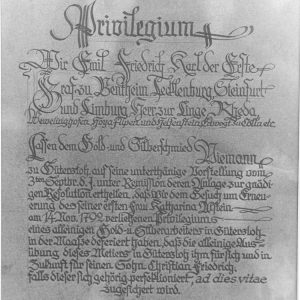 Privilegium
Wir Emil Friedrich Karl der Erste
Graf zu Bentheim Tecklenburg Steinfurt
und Limburg Herr zur Linge Rheda,
Wevelinghofen
Lassen dem Gold- und Silberschmied Niemann
zu Gütersloh, auf seine unterthänige Vorstellung vom
3ten Septbr. d. J. unter Remission deren Anlage zur gnädi-
gen Resolution ertheilen, daß Wir dem Gesuch um Erneue-
rung des seiner ersten Frau Katharina
am 14. Nov. 1792 verliehenen Privilegiums
eines alleinigen Gold- u. Silberarbeiters in Gütersloh,
in der Maaße deferiert haben, daß die alleinige Aus-
übung dieses Metiers in Gütersloh ihm für sich und in
Zukunft für seinen Sohn Christian Friedrich,
falls dieser sich gehörig perfektioniert, ad dies vitae
zugesichert wird.